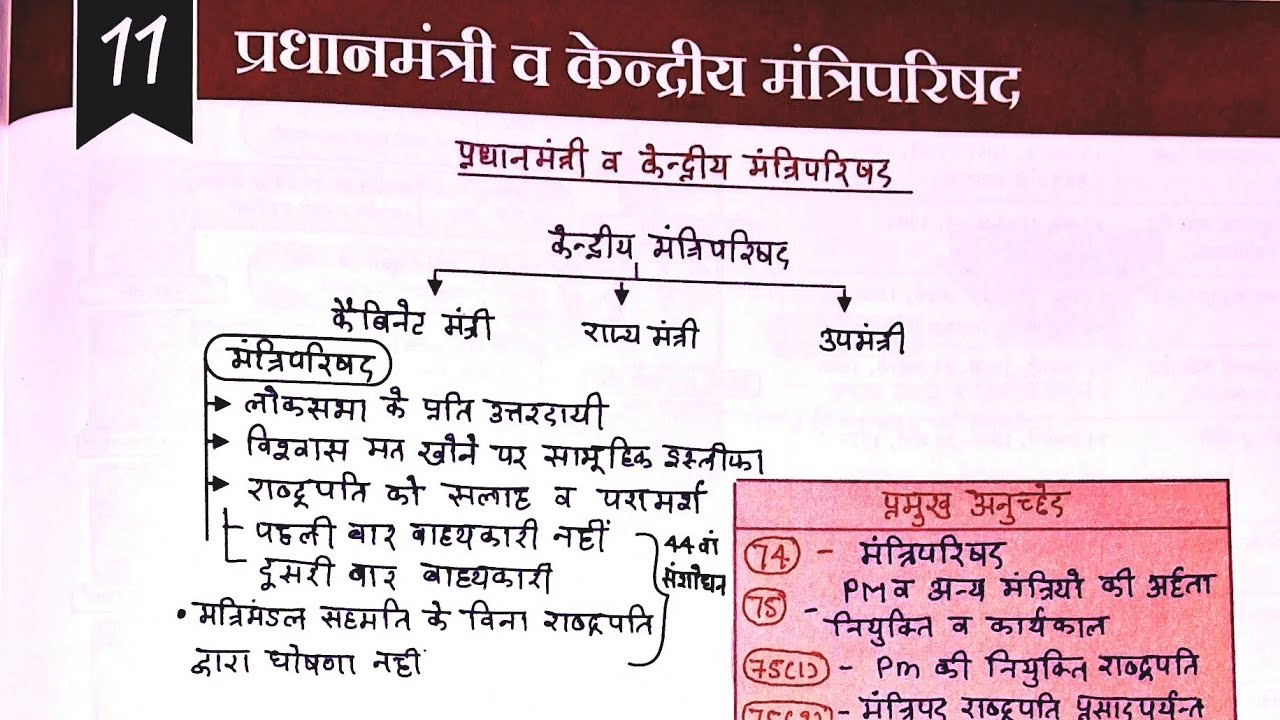 11
प्रधानमंत्री व केन्द्रीय मंत्रिपरिषद
प्रधानमंत्री व केन्द्रीय मंत्रिपरिषद
केन्द्रीय मंत्रिपरिषद
कैबिनेट मंत्री
राज्य मंत्री
उपमंत्री
मंत्रिपरिषद
लोकसभा के प्रति उत्तरदायी
विश्वास मत खोने पर सामूहिक इस्तीफा
राष्ट्रपति को सलाह व परामर्श
पहली बार बाध्यकारी नहीं
दूसरी बार बाध्यकारी
44 वां
संशोधन
• मत्रिमंडल सहमति के बिना राष्ट्रपति
द्वारा घोषणा नहीं
प्रमुख अनुच्छेद
74 - मंत्रिपरिषद
75 - PM व अन्य मंत्रियो की अर्हता
नियुक्ति व कार्यकाल
75(1) - Pm की नियुक्ति राष्ट्रपति
- मंत्रिपद राष्ट्रपति प्रसादपर्यन्त